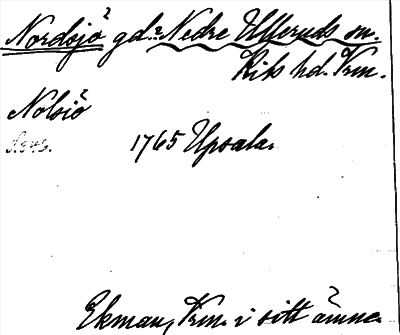 Nordsjö gd. Nedre Ulleruds sn.
Kils hd. Vrm.
Nolsiö
1765 Upsala.
Ekman, Vrm. i sitt ämne.